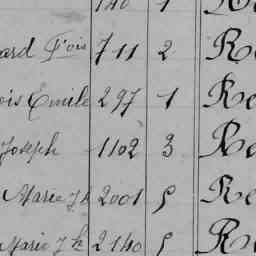 140 1 Re
ard Fois 711 2 Re
ois Emile 297 1 Re
Joseph 1102 3 Re
Marie Jh 2001 5 Re
Marie Jh 2140 5 Re